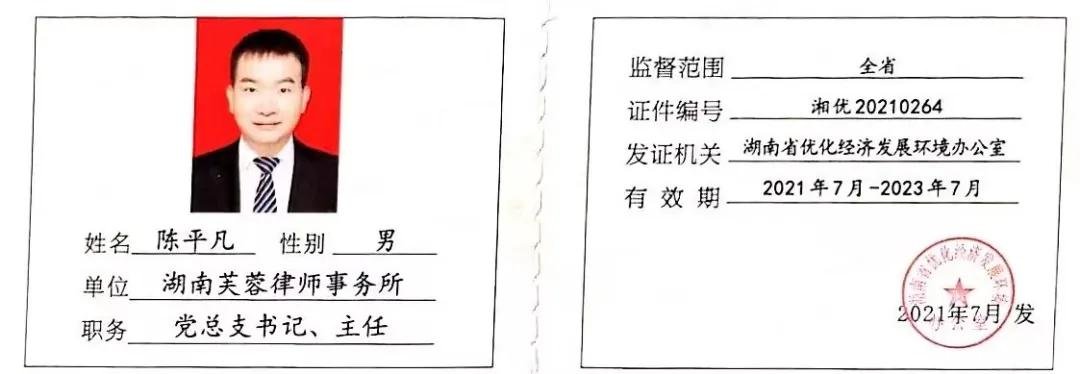 姓名 陈平凡 性别 男
单位 湖南芙蓉律师事务所
职务 党总支书记、主任
监督范围 全省
证件编号 湘优20210264
发证机关 湖南省优化经济发展环境办公室
有效期 2021年7月-2023年7月
湖南省优化经济发展环境
办公室
2021年7月 发